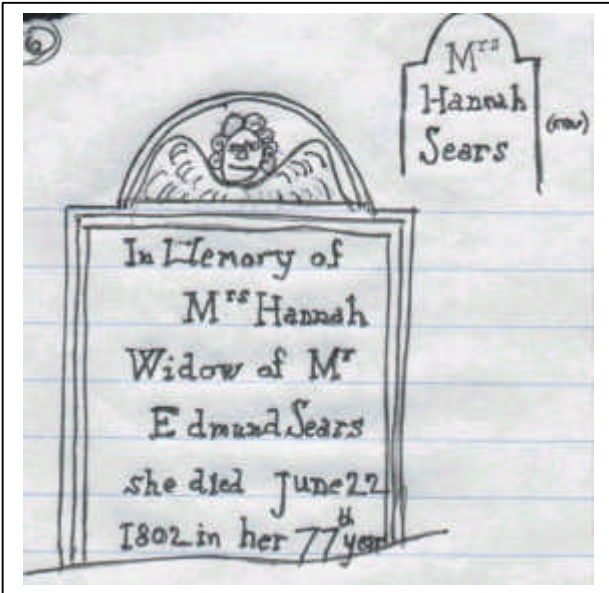 6
Mrs
Hannah
Sears
(rev)
In Memory of
Mrs Hannah
Widow of Mr
Edmund Sears
she died June 22
1802 in her 77th year